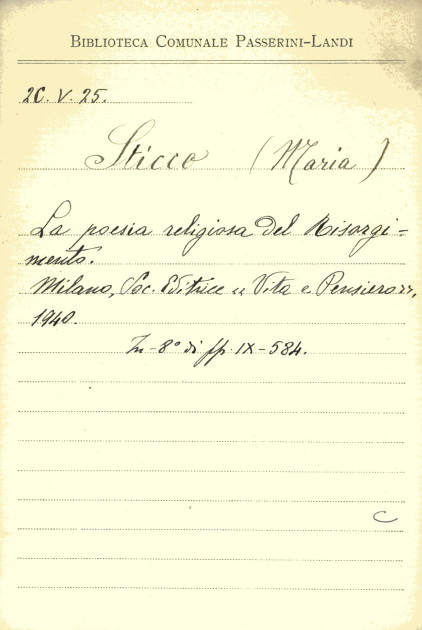 BIBLIOTECA COMUNALE PASSERINI-LANDI
2C. V. 25.
Sticco (Maria)
La poesia religiosa del Risorgi=
mento.
Milano, Soc. Editrice „ Vita e Pensiero „,
1940.
In-8° di pp. IX-584.
C